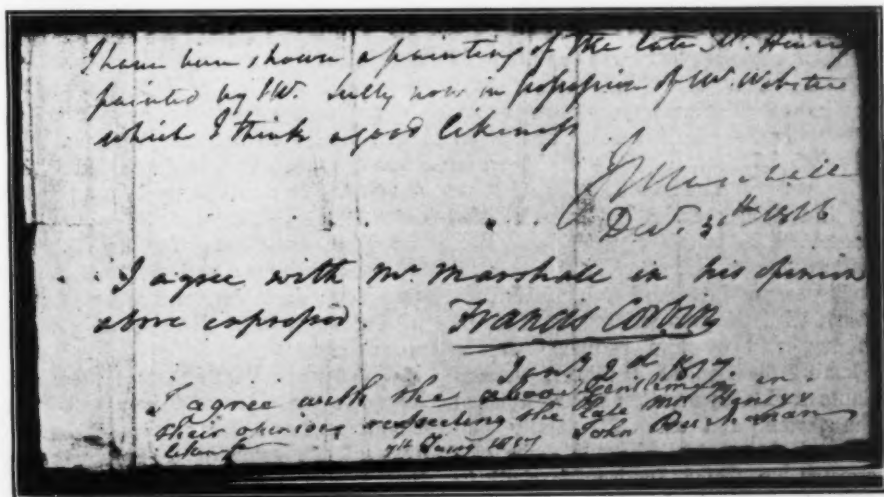 I have been shown a painting of the late Mr. Henry
painted by Mr. Sully now in possession of Mr. Webster
which I think a good likeness
J Marshall
Decr. 30th 1816
I agree with Mr. Marshall in his opinion
above expressed. Francis Corbin
Jany. 2d. 1817.
I agree with the above Gentlemen in
their opinions respecting the late Mr. Henrys
likeness 4th Jany 1817 John Buchanan